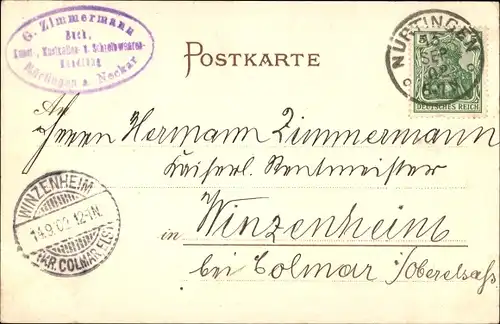 G. Zimmermann
Buch,
Kunst-, Musikalien- u. Schreibwaren-
Handlung
Nürtingen a. Neckar
POSTKARTE
NÜRTINGEN
13
SEP
02
DEUTSCHES REICH
An
Herrn Hermann Zimmermann
Kaiserl. Rentmeister
in Winzenheim
bei Colmar i/Oberelsaß
WINZENHEIM
14.9.02.12-1N.
(KR. COLMAR ELS.)